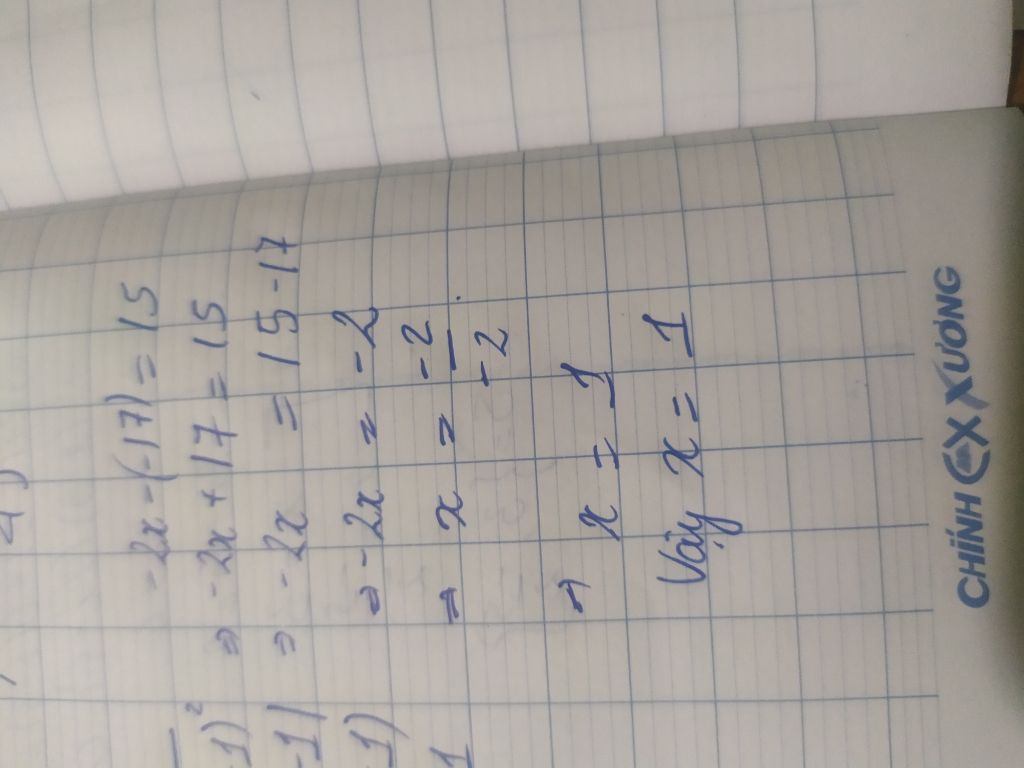 4)
-2x-(-17) = 15
⇒ -2x + 17 = 15
⇒ -2x = 15-17
⇒ -2x = -2
⇒ x = -2/-2
⇒ x = 1
Vậy x = 1
1)²
-1)
-1)
1
CHÍNH XƯƠNG